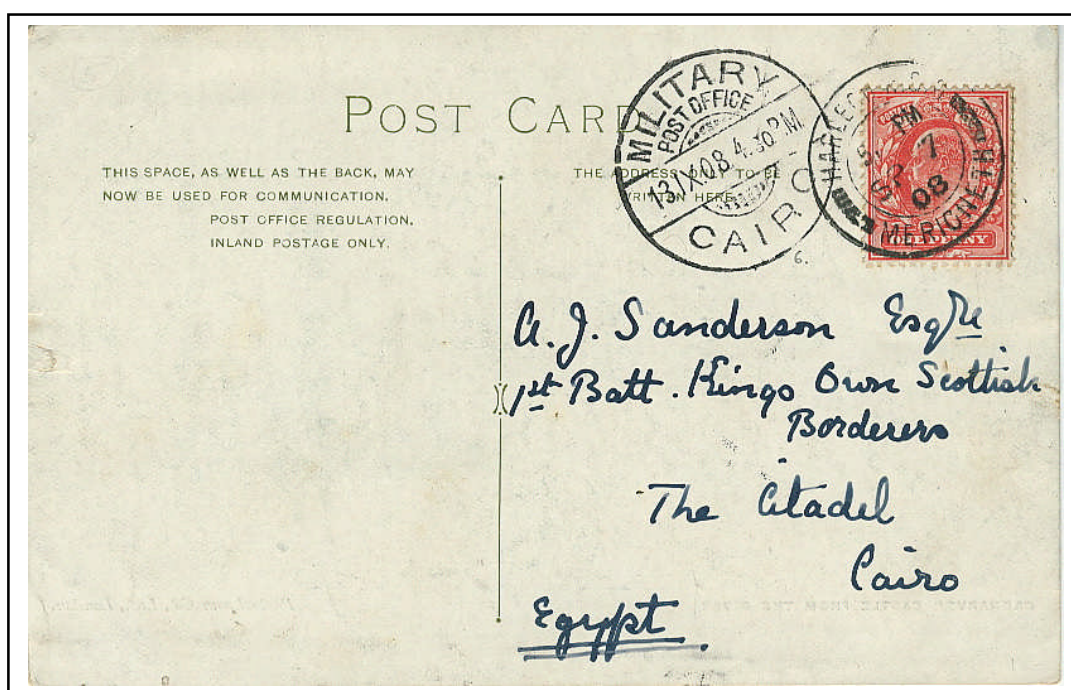 POST CARD
THIS SPACE, AS WELL AS THE BACK, MAY
NOW BE USED FOR COMMUNICATION.
POST OFFICE REGULATION.
INLAND POSTAGE ONLY.
THE ADDRESS ONLY TO BE
WRITTEN HERE
MILITARY
POST OFFICE
13/IX.08.4.30PM
CAIRO
6.
HARLECH
PM
7
08
MERIONETH
ONE PENNY
A. J. Sanderson Esqre
1st Batt. Kings Own Scottish
Borderers
The Citadel
Cairo
Egypt